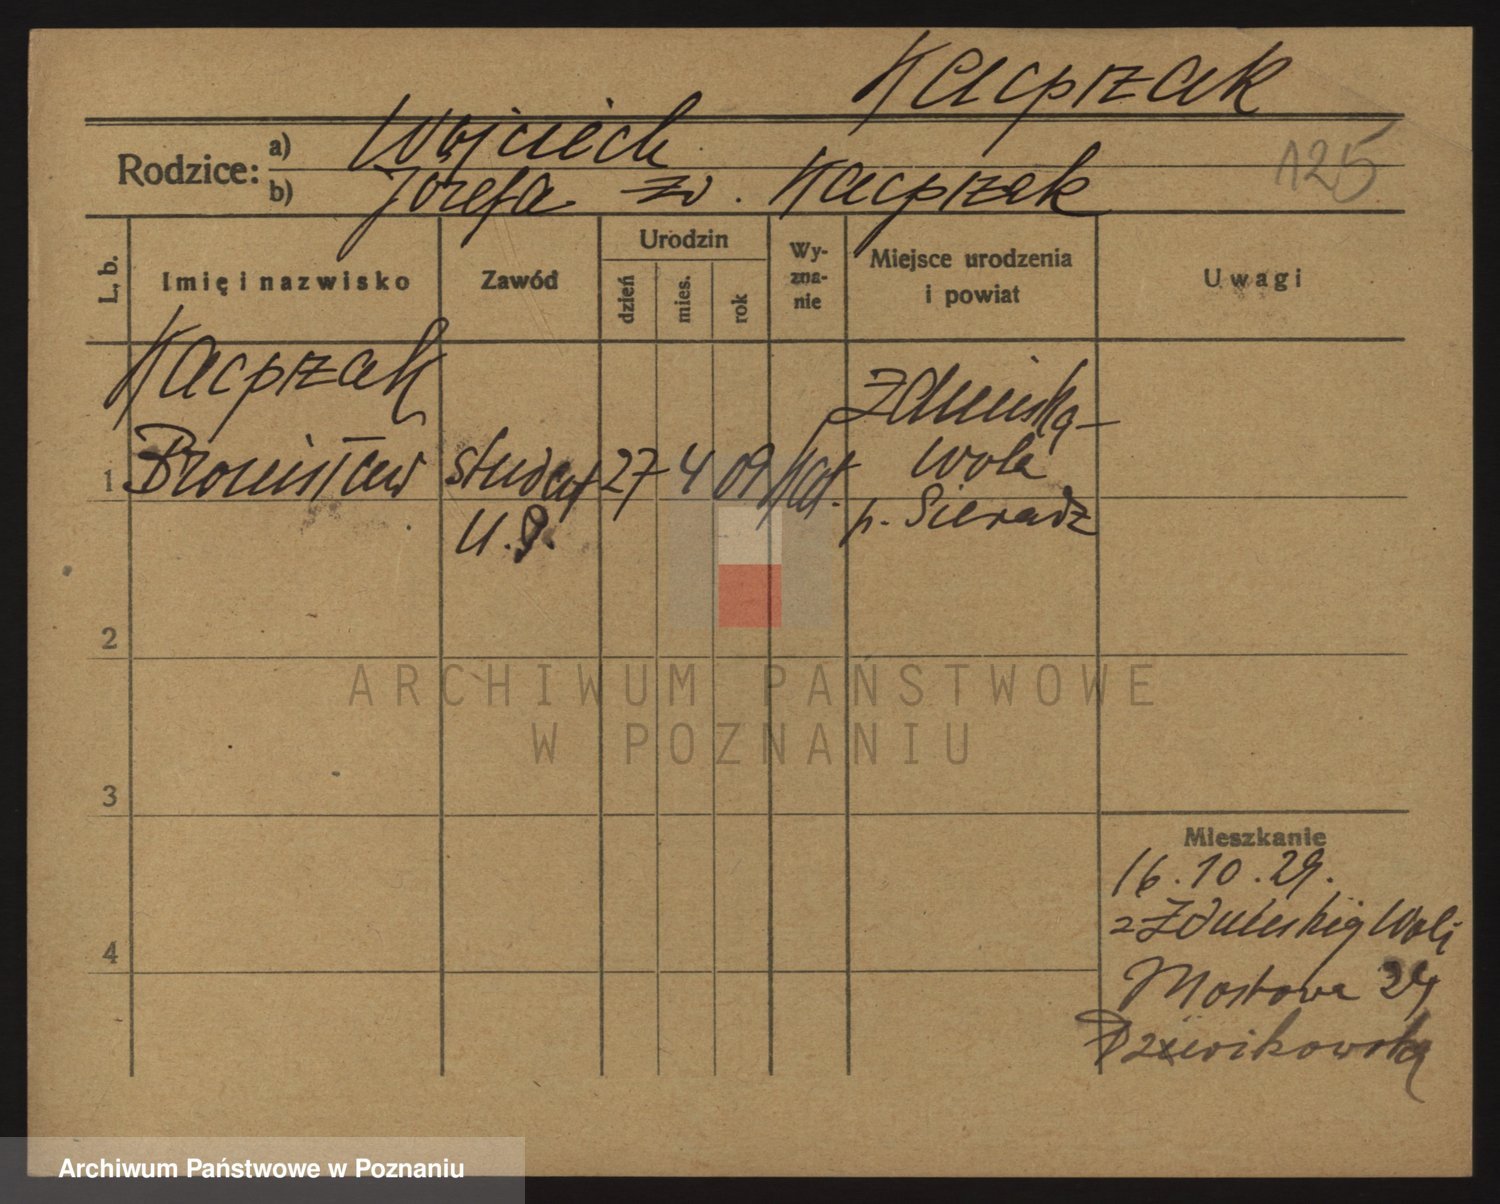 Kacprzak
Rodzice: a) Wojciech
125
b) Józefa zd. Kacprzak
L. b.
Imię i nazwisko
Zawód
Urodzin
dzień
mies.
rok
Wy-
zna-
nie
Miejsce urodzenia
i powiat
Uwagi
Kacprzak
1 Bronisław
student
U.P.
27
4
09
kat.
Zduńska-
Wola
p. Sieradz
2
3
4
Mieszkanie
16.10.29.
z Zduńskiej Woli
Mostowa
ARCHIWUM PAŃSTWOWE
W POZNANIU
Archiwum Państwowe w Poznaniu